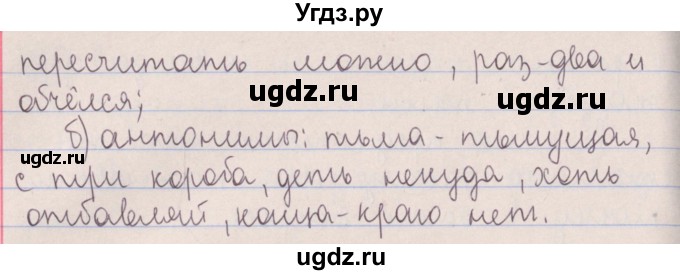 Угдз.ру
пересчитать можно, раз-два и
обчёлся;
ugdz.ru
ugdz.ru
б) антонимы: тьма-тьмущая,
ugdz.ru
с три короба, деть некуда, хоть
отбавляй, конца-краю нет.
ugdz.ru